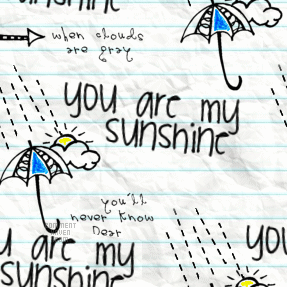 sunshine
when clouds
are gray
you are my
sunshine
you'll
never know
Dear
u are my
sunshine
you